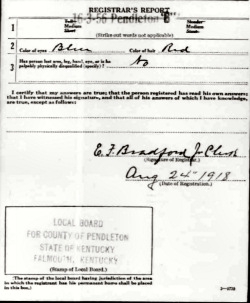 REGISTRAR'S REPORT
16-3-56 Pendleton B
1
Tall
Medium
Short
Slender
Medium
Stout
(Strike out words not applicable)
2 Color of eyes Blue Color of hair Red
3 Has person lost arm, leg, hand, eye, or is he
palpably physically disqualified (specify)? No
I certify that my answers are true; that the person registered has read his own answers;
that I have witnessed his signature, and that all of his answers of which I have knowledge
are true, except as follows:
E. F. Bradford Jr Clerk
(Signature of Registrar.)
Aug 24th 1918
(Date of Registration.)
LOCAL BOARD
FOR COUNTY OF PENDLETON
STATE OF KENTUCKY
FALMOUTH, KENTUCKY
(Stamp of Local Board.)
(The stamp of the local board having jurisdiction of the area
in which the registrant has his permanent home shall be placed
in this box.)